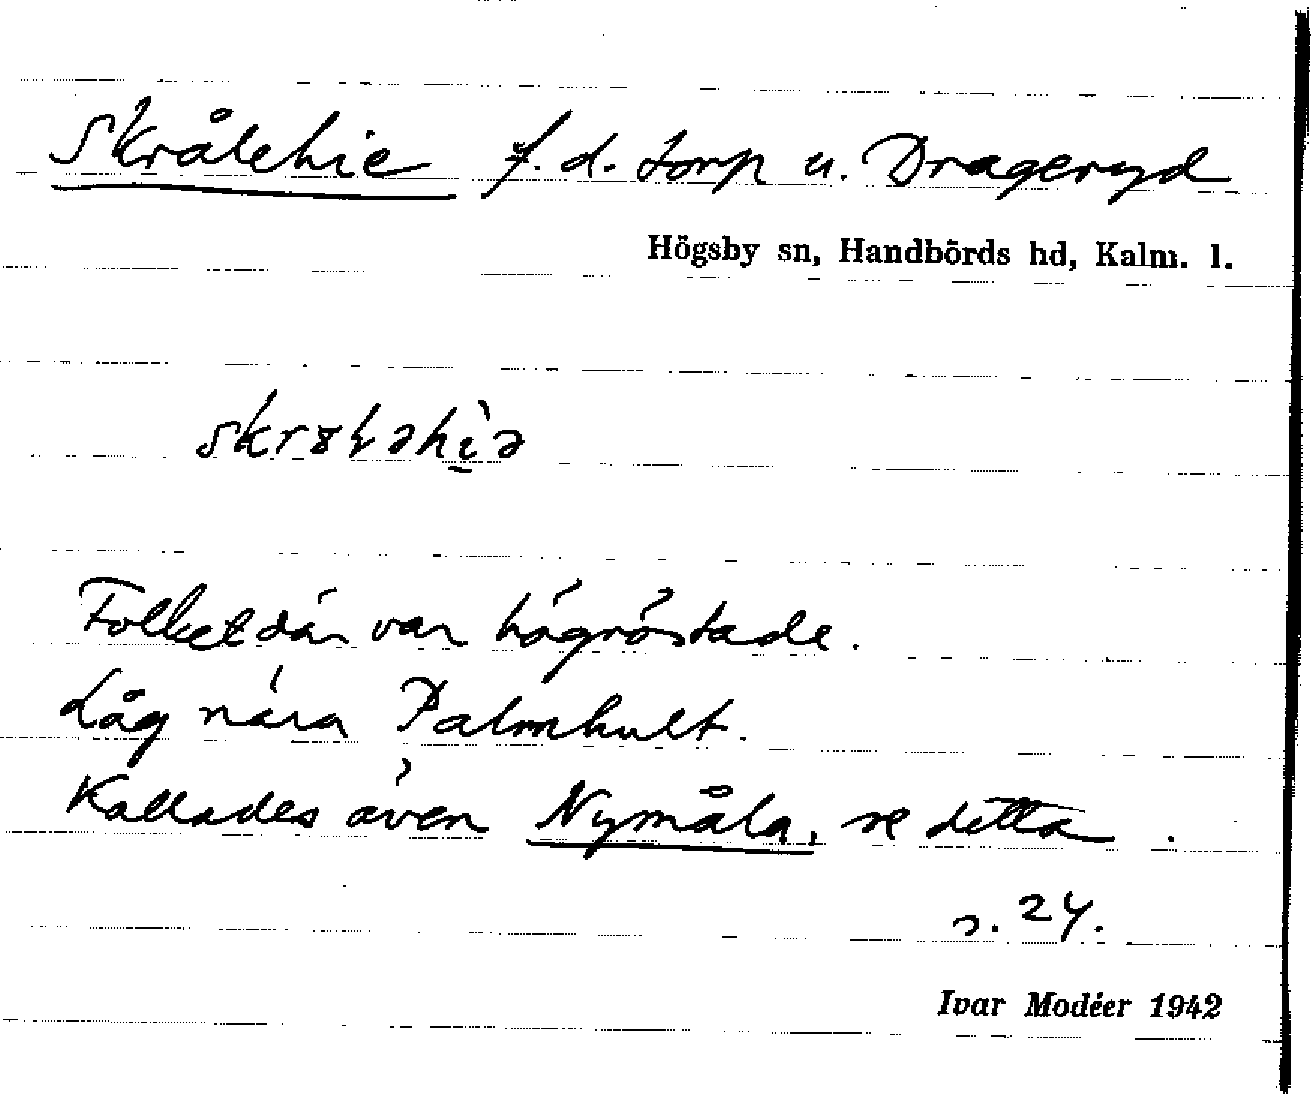 Skrålehie f.d. torp u. Drageryd
Högsby sn, Handbörds hd, Kalm. l.
Folket där var högröstade.
Låg nära Palmhult.
Kallades även Nymåla, se detta.
s. 24.
Ivar Modéer 1942